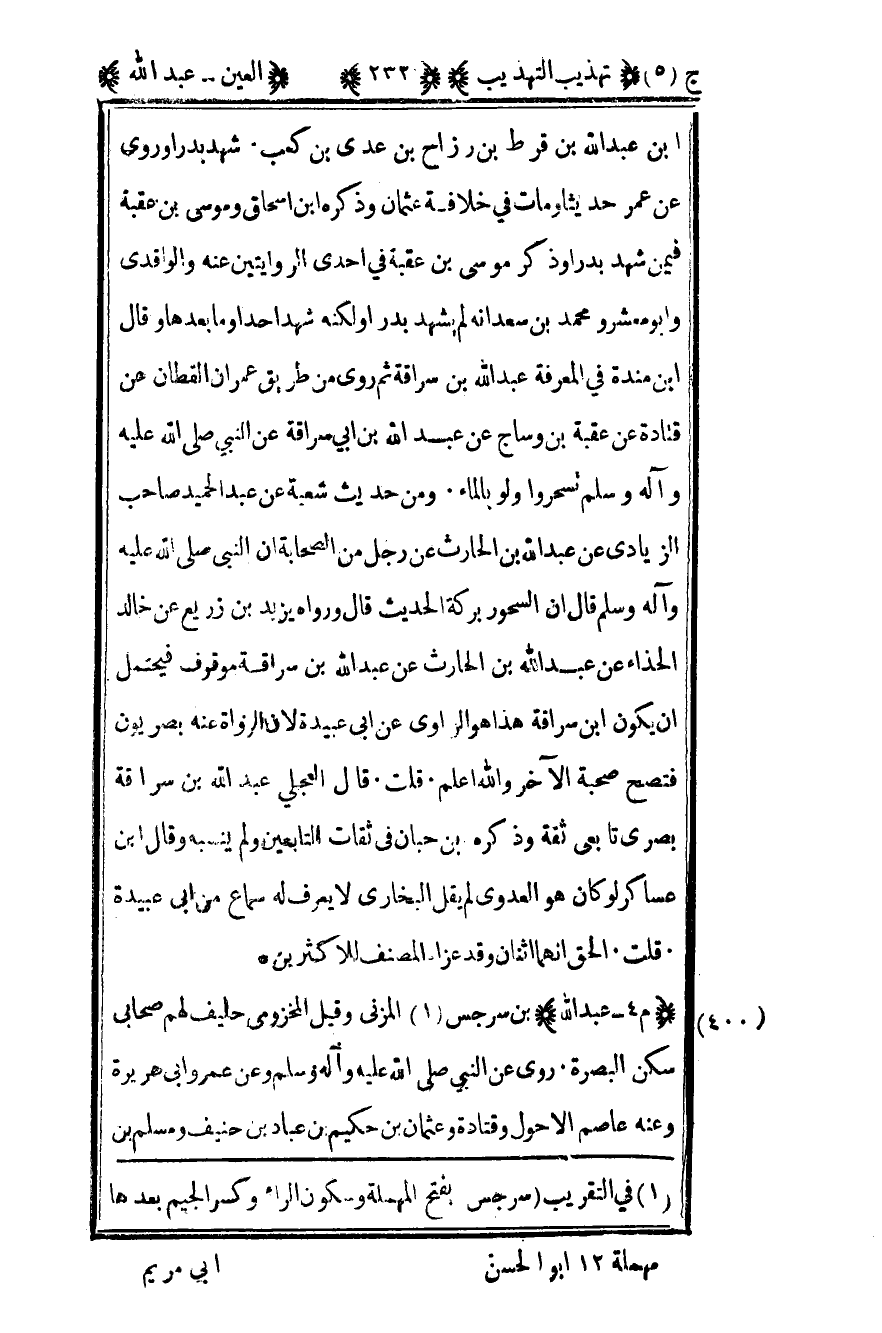 ج (٥) ﴿ تهذيب التهذيب ﴾ ﴿ ٢٣٢ ﴾ ﴿ العين - عبد الله ﴾
ابن عبدالله بن قرط بن رزاح بن عدى بن كعب . شهد بدرا وروى
عن عمر حديثا ومات في خلافة عثمان وذكره ابن اسحاق وموسى بن عقبة
فيمن شهد بدرا وذكر موسى بن عقبة في احدى الروايتين عنه والواقدى
وابومعشر ومحمد بن سعد انه لم يشهد بدرا ولكنه شهد احدا وما بعدها وقال
ابن مندة في المعرفة عبدالله بن سراقة ثم روى من طريق عمران القطان عن
قتادة عن عقبة بن وساج عن عبد الله بن ابي سراقة عن النبي صلى الله عليه
وآله وسلم تسحروا ولو بالماء . ومن حديث شعبة عن عبدالحميد صاحب
الزيادى عن عبدالله بن الحارث عن رجل من الصحابة ان النبى صلى الله عليه
وآله وسلم قال ان السحور بركة الحديث قال ورواه يزيد بن زريع عن خالد
الحذاء عن عبد الله بن الحارث عن عبدالله بن سراقة موقوف فيحتمل
ان يكون ابن سراقة هذا هو الراوى عن ابى عبيدة لان الرواة عنه بصريون
فتصح صحبة الآخر والله اعلم . قلت . قال العجلي عبد الله بن سراقة
بصرى تابعى ثقة وذكره بن حبان فى ثقات التابعين ولم ينسبه وقال ابن
عساكر لو كان هو العدوى لم يقل البخارى لا يعرف له سماع من ابى عبيدة
. قلت . الحق انهما اثنان وقد عزاه المصنف للاكثرين •
(٤٠٠) ﴿ م ٤ - عبدالله ﴾ بن سرجس (١) المزنى وقيل المخزومى حليف لهم صحابي
سكن البصرة . روى عن النبي صلى الله عليه وآله وسلم وعن عمر وابى هريرة
وعنه عاصم الاحول وقتادة وعثمان بن حكيم بن عباد بن حنيف ومسلم بن
(١) في التقريب (سرجس بفتح المهملة وسكون الراء وكسر الجيم بعدها
مهملة ١٢ ابو الحسن
ابي مريم